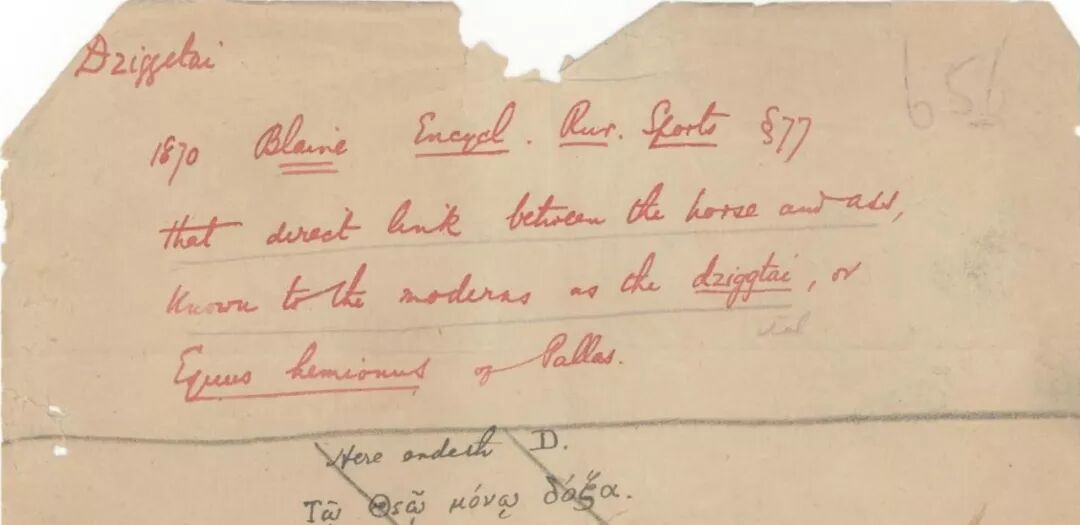 Dziggetai
656
1870 Blaine Encycl. Rur. Sports §77
that direct link between the horse and ass,
known to the moderns as the dziggtai, or
Equus hemionus of Pallas.
Here endeth D.
Τῷ Θεῷ μόνῳ δόξα.